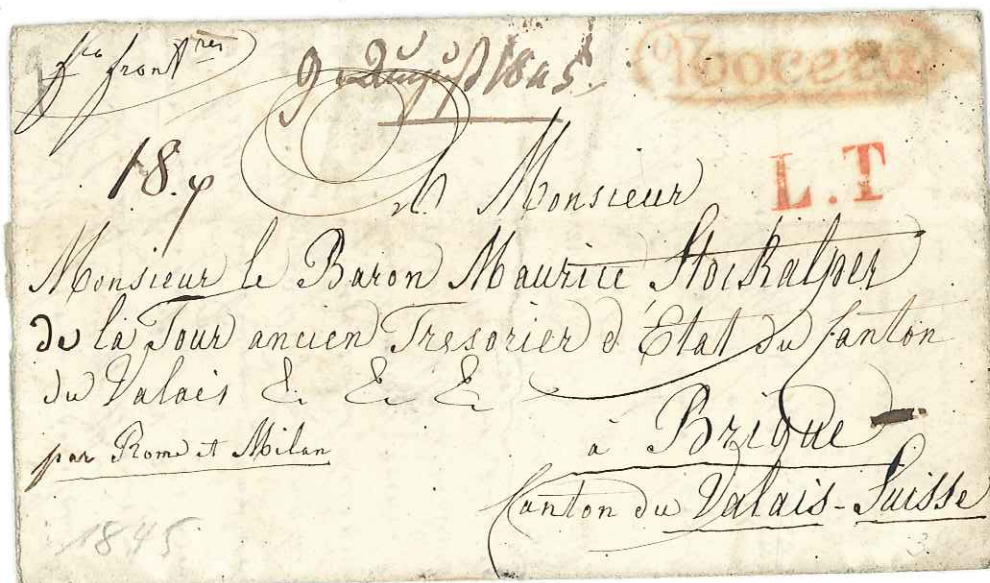 f<sup>co</sup> front<sup>res</sup>
9 August 1845.
Nocera
18.
L.T
A Monsieur
Monsieur le Baron Maurice Stockalper
de la Tour ancien Tresorier d'Etat du Canton
du Valais &. &. &.
par Rome et Milan
à Brigue
Canton du Valais-Suisse
1845
3.